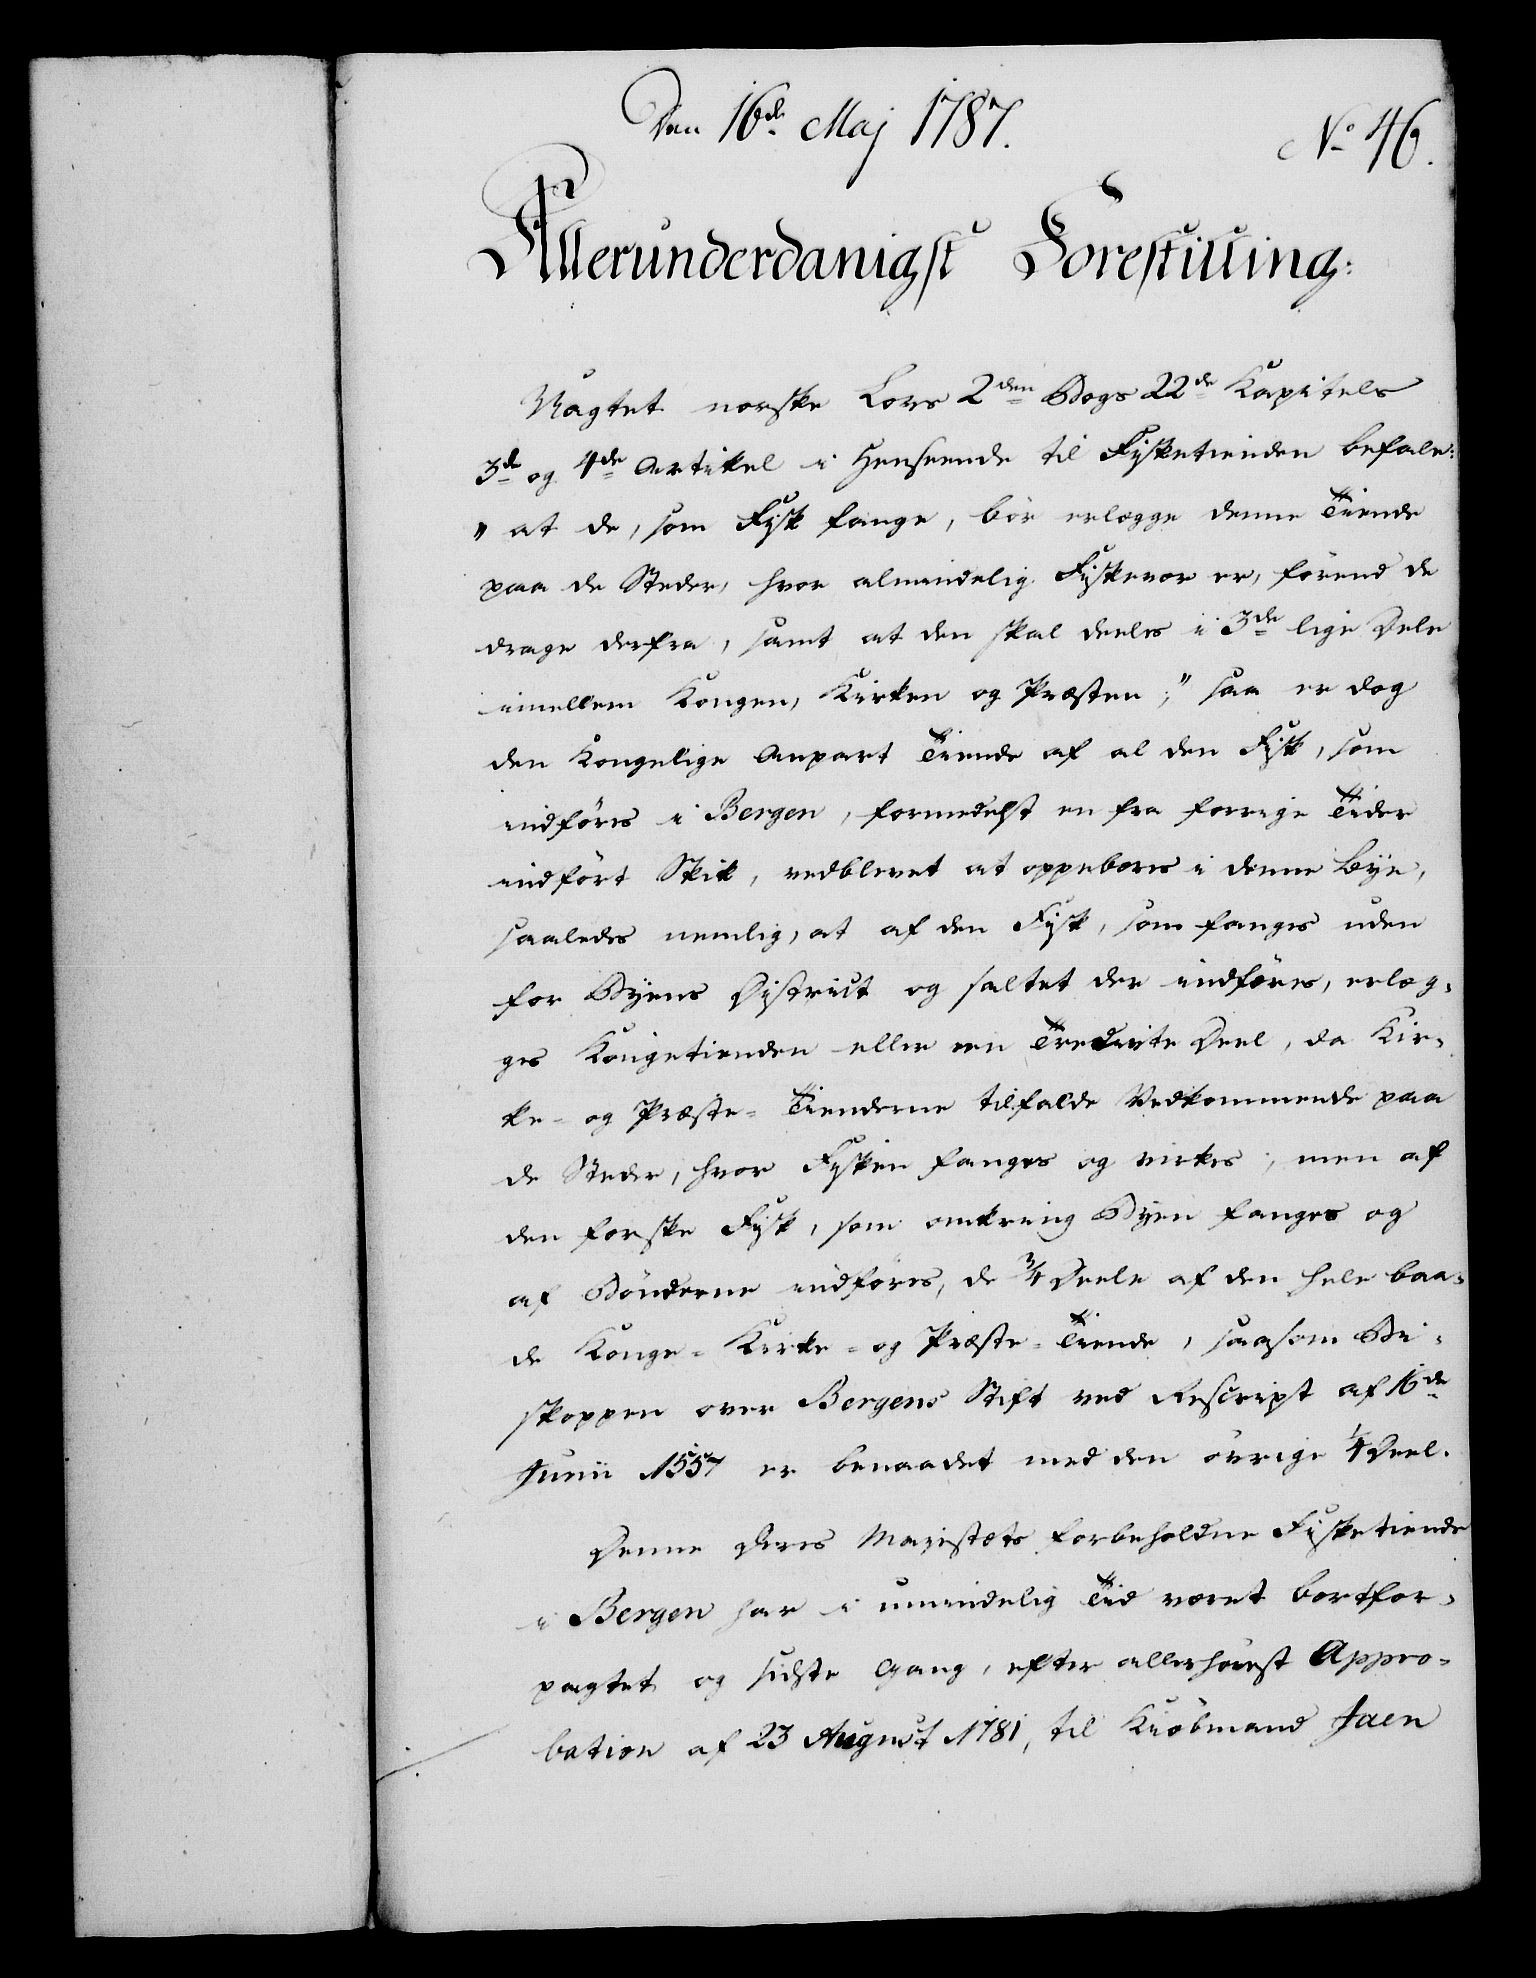 Den 16de Maj 1787.
No 46.
Allerunderdanigst Forestilling:
Uagtet norske Lovs 2den Bogs 22de Kapitels
3de og 4de Artikel i Henseende til Fisketienden befale:
" at de, som Fisk fange, bør erlægge denne Tiende
paa de Steder, hvor almindelig Fiskevær er, førend de
drage derfra, samt at den skal deeles i 3de lige Dele
imellem Kongen, Kirken og Præsten;" saa er dog
den Kongelige Anpart Tiende af al den Fisk, som
indføres i Bergen, formedelst en fra forrige Tider
indført Skik, vedblevet at oppebæres i denne Bye,
saaledes nemlig, at af den Fisk, som fanges uden
for Byens District og saltet der indføres, erlæg-
ges Kongetienden eller een Tredivte Deel, da Kir-
ke- og Præste-Tienderne tilfalde Vedkommende paa
de Steder, hvor Fisken fanges og virkes; men af
den ferske Fisk, som omkring Byen fanges og
af Bønderne indføres, de 3/4 Deele af den hele baa-
de Konge- Kirke- og Præste-Tiende, saasom Bi-
skoppen over Bergens Stift ved Rescript af 16de
Junii 1557 er benaadet med den øvrige 1/4 Deel.
Denne Deres Majestæts forbeholdne Fisketiende
i Bergen har i umindelig Tid været bortfor-
pagtet og sidste Gang, efter allerhøiest Appro-
bation af 23 August 1781, til Kiøbmand Jaen